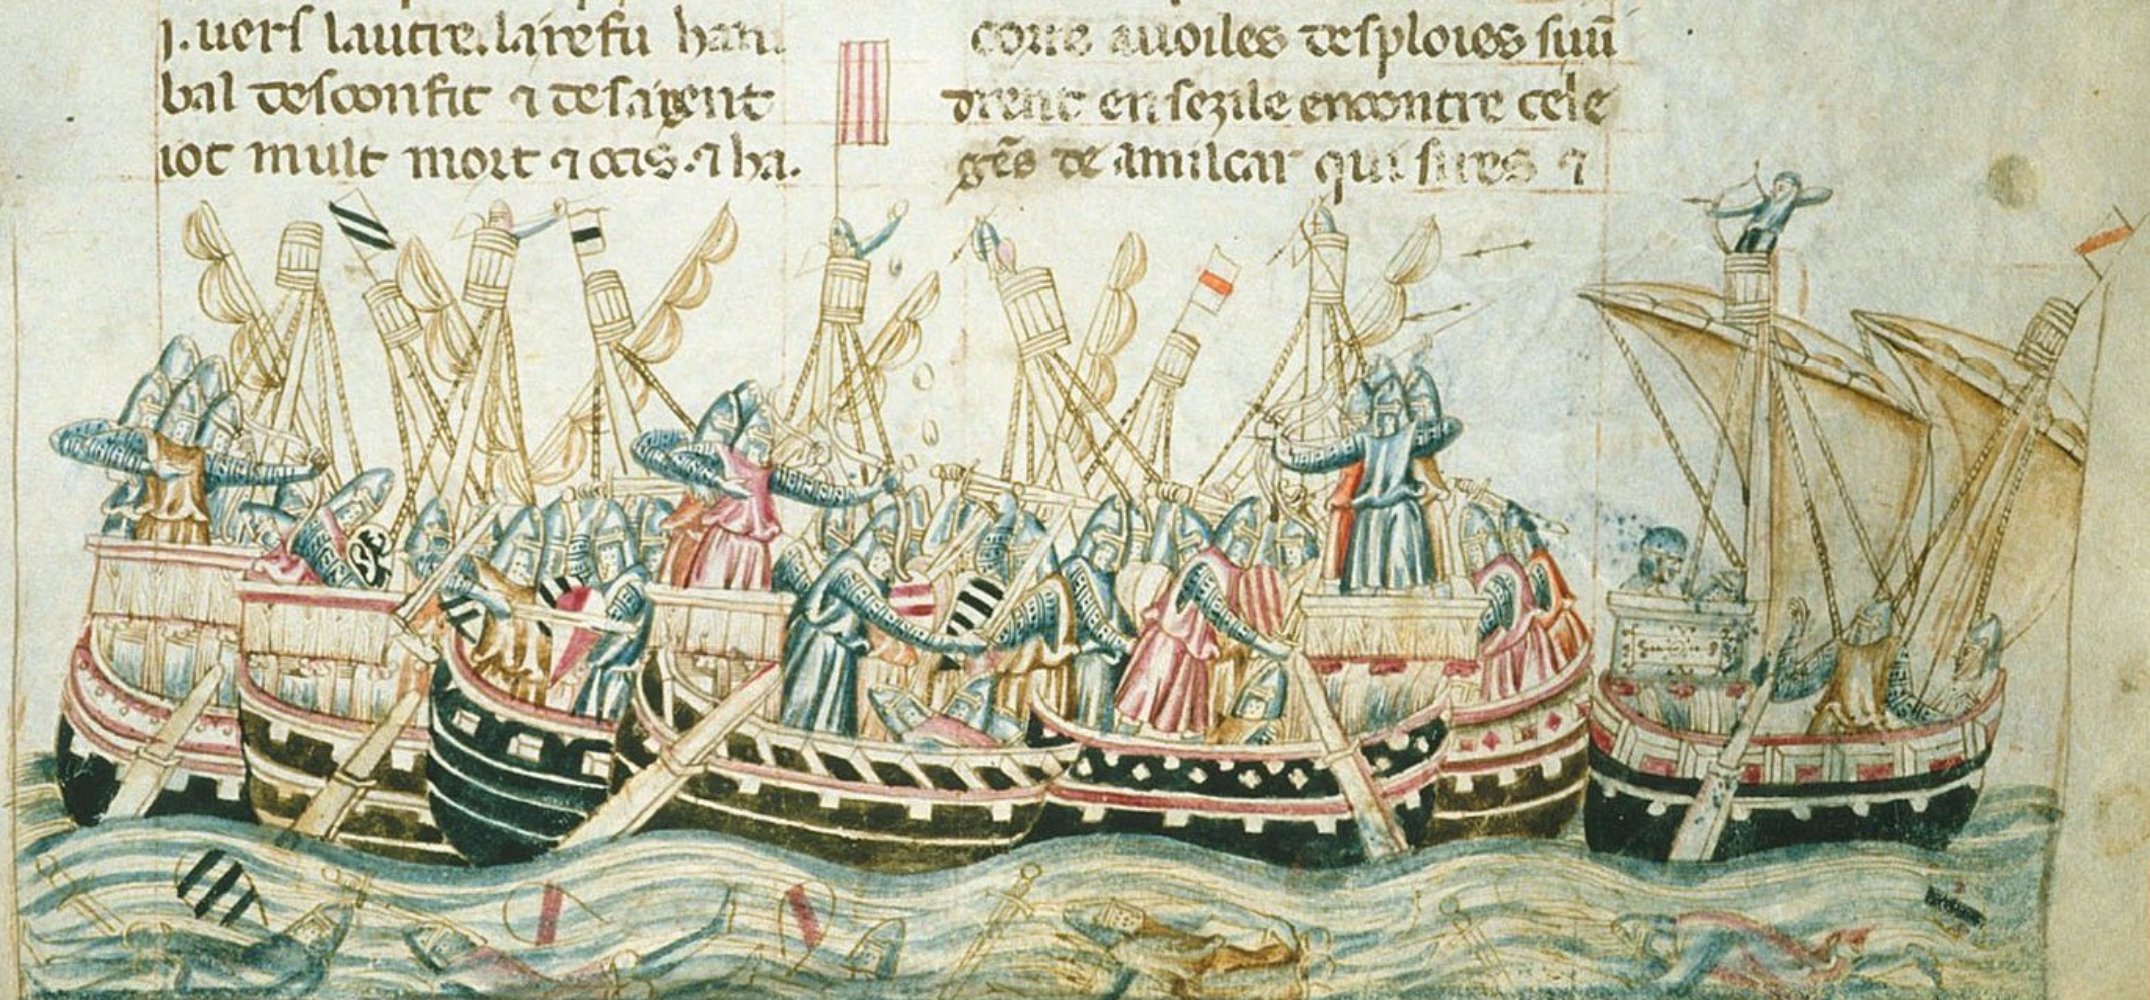 j. uers lautre. la refu han
bal desconfit ⁊ desa gent
iot mult mort ⁊ ocis. ⁊ ha.
corre auoiles desploies suũ
drent en sezile encontre cele
gẽs de amilcar qui sires ⁊